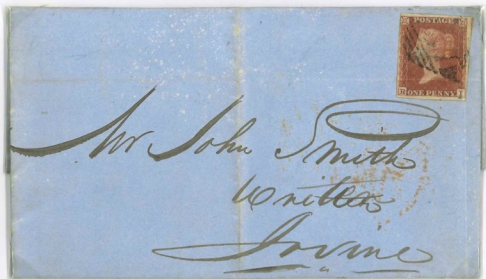 POSTAGE
ONE PENNY
Mr John Smith
Writer
Irvine